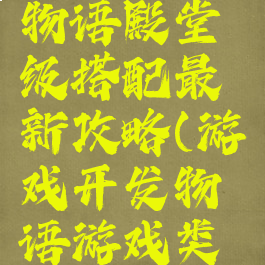 物语殿堂
级搭配最
新攻略(游
戏开发物
语游戏类